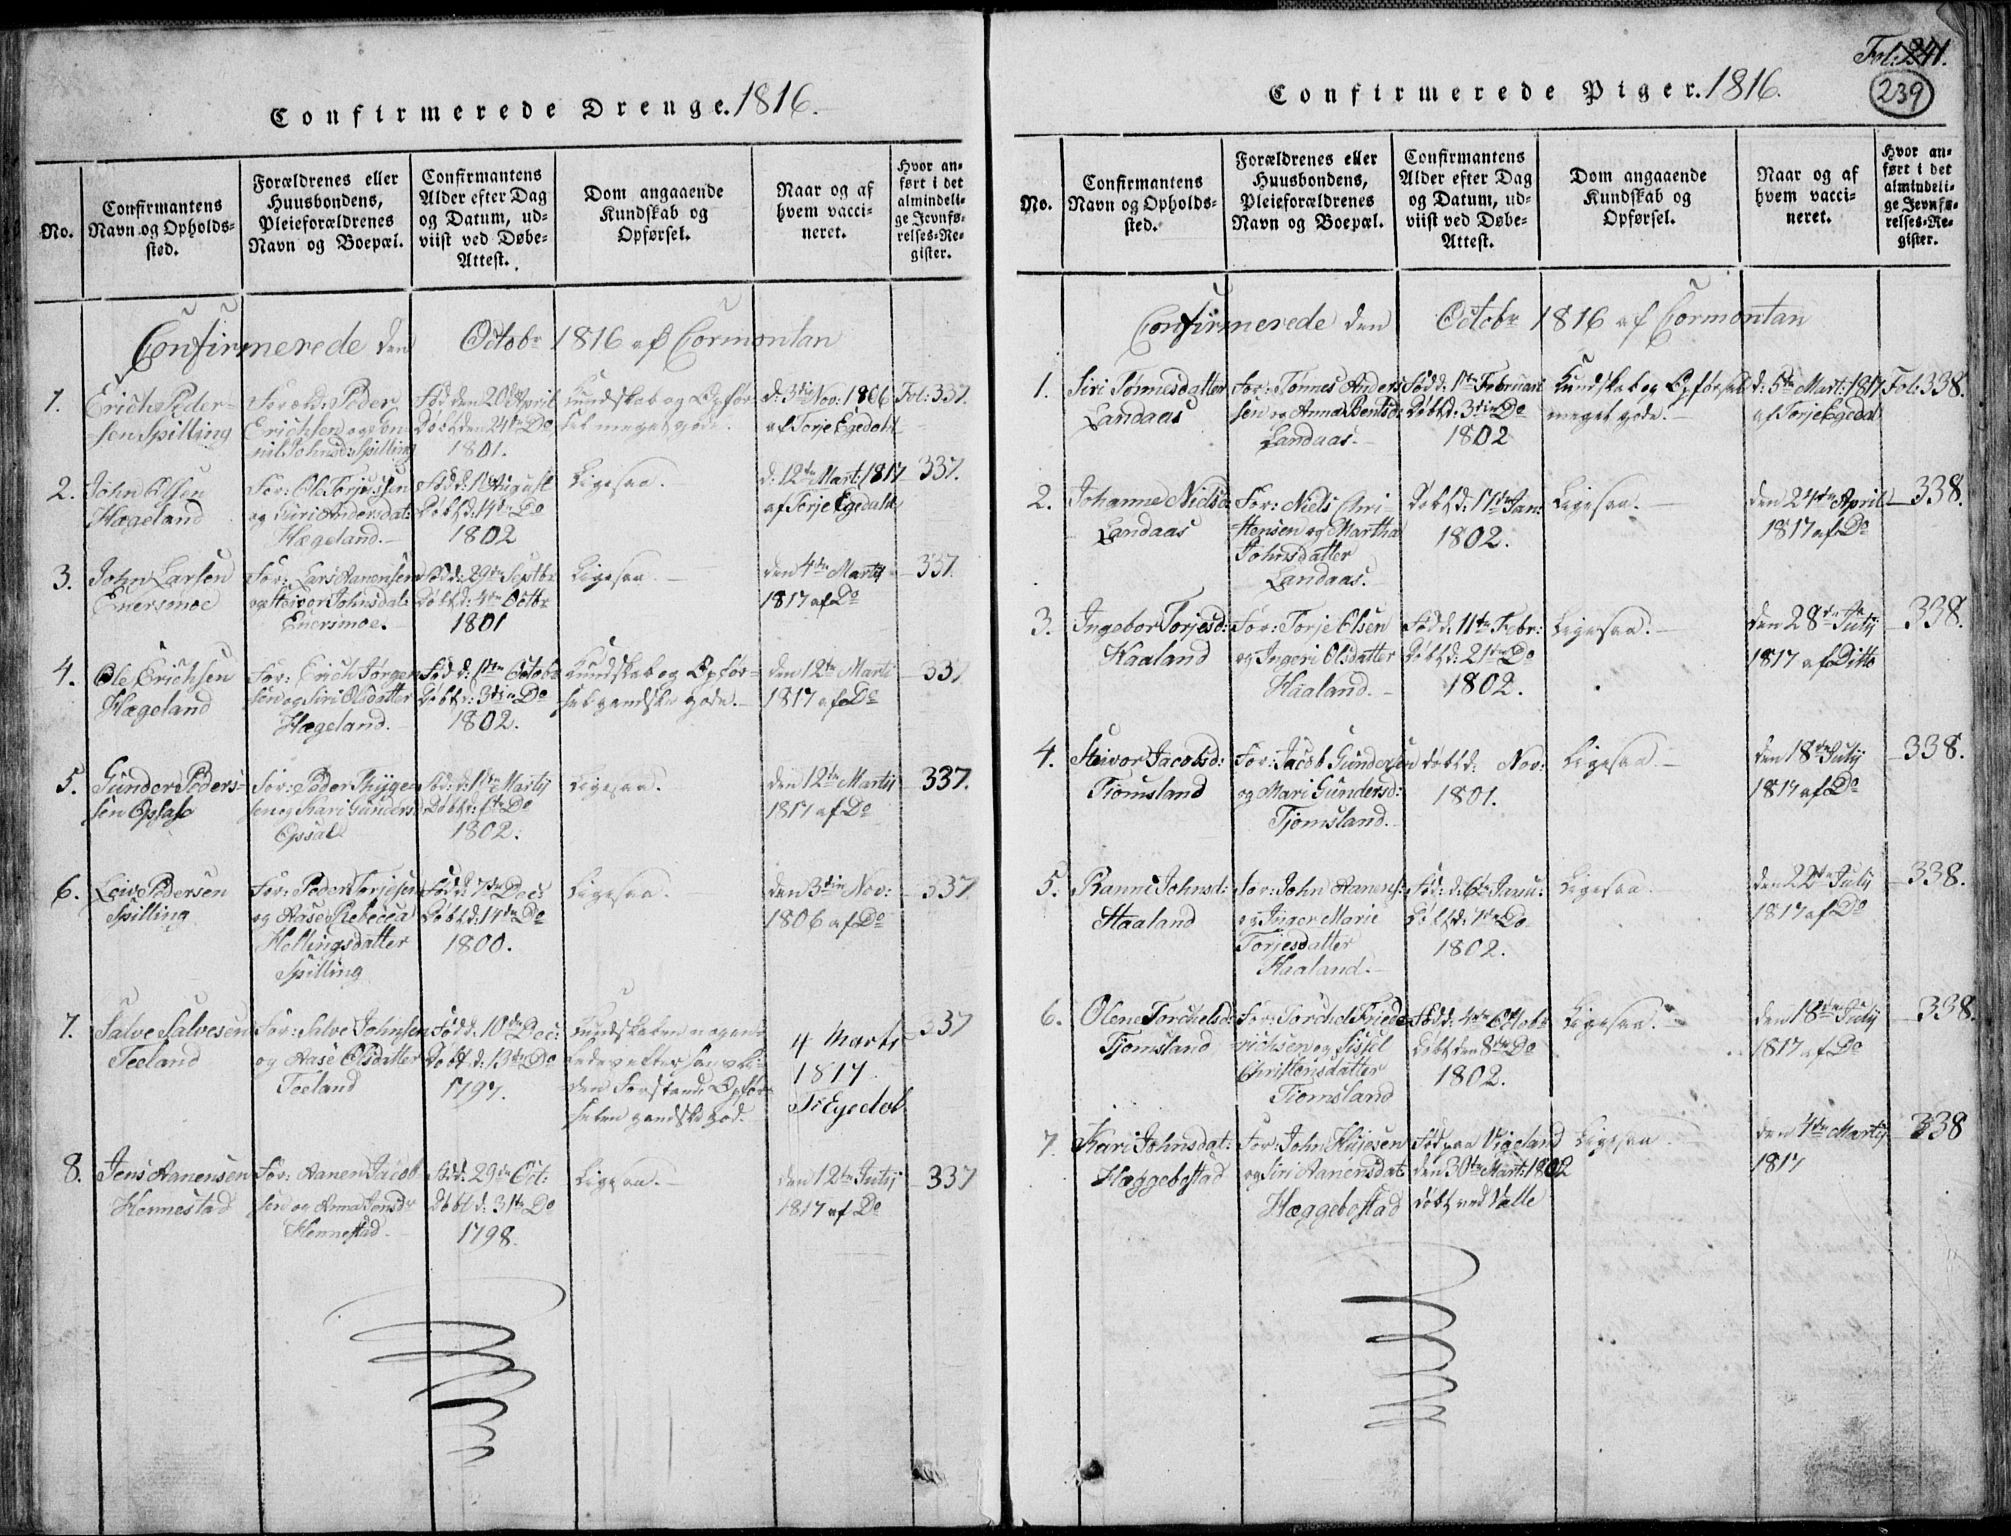 Confirmerede Drenge. 1816.
No.
Confirmantens
Navn og Opholds-
sted.
Forældrenes eller
Huusbondens,
Pleieforældrenes
Navn og Boepæl.
Confirmantens
Alder efter Dag
og Datum, ud-
viist ved Døbe-
Attest.
Dom angaaende
Kundskab og
Opførsel.
Naar og af
hvem vacci-
neret.
Hvor an-
ført i det
almindeli-
ge Jevnfø-
relses-Re-
gister.
Confirmerede den Octobr 1816 af Cormontan
1.
Erich Peder-
sen Spilling
Foræld: Peder
Erichsen og
Johnsd: Spilling
Fød den 20de April
Døbt den 24de Do
1801.
Kundskab og Opfør-
sel meget gode.
d: 3die Nov: 1806
af Torje Egedahl
Fol: 337.
2.
John Olsen
Hægeland
For: Ole Torjussen
og Siri Andersdat:
Hægeland.
Fød d: 1 August
Døbt d: 14de Do
1802
Ligesaa.
d: 12te Mart: 1817
af Torje Egedahl
337.
3.
John Larsen
Enersmoe
For: Lars Aanensen
og Steivor Johnsdat:
Enersmoe.
Fød d: 29de Septbr
Døbt d: 4de Octbr
1801
Ligesaa.
den 4de Martij
1817 af Do
337.
4.
Ole Erichsen
Hægeland
For: Erich Jørgen-
sen og Siri Olsdatter
Hægeland.
Fød d: 1ste Octobr
Døbt d: 3die Do
1802.
Kundskab og Opfør-
sel gandske gode.
den 12te Marti
1817 af Do
337
5.
Gunder Peders-
sen Opsahl
For: Peder Thygen-
sen og Kari Gunders:
Opsal
Fød: d: 1ste Martij
Døbt d: Do
1802.
Ligesaa.
den 12te Martij
1817 af Do
337.
6.
Leive Pedersen
Spilling
For: Peder Torjesen
og Aase Rebecca
Hellingsdatter
Spilling
Fød d: 7de Dec:
Døbt d: 14de Do
1800.
Ligesaa.
den 3die Nov:
1806 af Do
337.
7.
Salve Salvesen
Teeland
For: Salve Johnsen
og Aase Olsdatter
Teeland
Fød d: 10de Dec:
Døbt d: 13de Do
1797.
Kundskaben nogen-
ledes efter hans
den Forstand: Opfør-
selen gandske god.
4 Marti
1817
T: Egedal
337
8.
Jens Aanensen
Hennestad
For: Aanen Jacob-
sen og Anna Jonsdr
Hennestad.
Fød: 29de Oct:
Døbt d: 31te Do
1798.
Ligesaa.
den 12te Julij
1817 af Do
337
Fol: 241.
239
Confirmerede Piger. 1816.
No.
Confirmantens
Navn og Opholds-
sted.
Forældrenes eller
Huusbondens,
Pleieforældrenes
Navn og Boepæl.
Confirmantens
Alder efter Dag
og Datum, ud-
viist ved Døbe-
Attest.
Dom angaaende
Kundskab og
Opførsel.
Naar og af
hvem vacci-
neret.
Hvor an-
ført i det
almindeli-
ge Jevnfø-
relses-Re-
gister.
Confirmerede den Octobr 1816 af Cormontan
1.
Siri Tønnesdatter
Landaas
For: Tønnes Anders-
sen og Anna Bentsd:
Landaas.
Fød d: 1ste Februari
Døbt d: 3die Do
1802
Kundskab og Opførsel
meget gode.
d: 5te Mart: 1817
af Torje Egedal
Fol: 338.
2.
Johanne Nielsd:
Landaas
For: Niels Chri-
stensen og Martha
Johnsdatter
Landaas.
Døbt d: 17de Jan:
1802.
Ligesaa.
den 24de April
1817 af Do
338.
3.
Ingebor Torjesd:
Haaland
For: Torje Olsen
og Ingeri Olsdatter
Haaland.
Fød d: 11te Febr:
Døbt d: 21de Do
1802.
Ligesaa.
den 28de July
1817 af Ditto
338.
4.
Steivor Jacobsd:
Tiomsland
For: Jacob Gundersen
og Mari Gundersd:
Tjomsland.
Døbt d: Nov:
1801.
Ligesaa.
den 18de Julij
1817 af Do
338.
5.
Ranni Johnsd:
Haaland
For: John Aanens:
og Inger Marie
Torjesdatter
Haaland.
Fød: d: 6te Janu:
Døbt d: 7de Do
1802.
Ligesaa.
den 22de Julij
1817 af Do
338.
6.
Olene Torchelsd:
Tjomsland
For: Torchel Fried-
richsen og Sissel
Christensdatter
Tiomsland
Fød d: 4de Octobr
Døbt den 8de Do
1802.
Ligesaa.
den 18de Julij
1817 af Do
338.
7.
Kari Johnsdat:
Hæggebostad
For: John Hujesen
og Siri Aanensdat:
Hæggebostad
Fød paa Vigeland
den 30te Mart: 1802
døbt ved Valle
Ligesaa.
den 4de Martij
1817
338